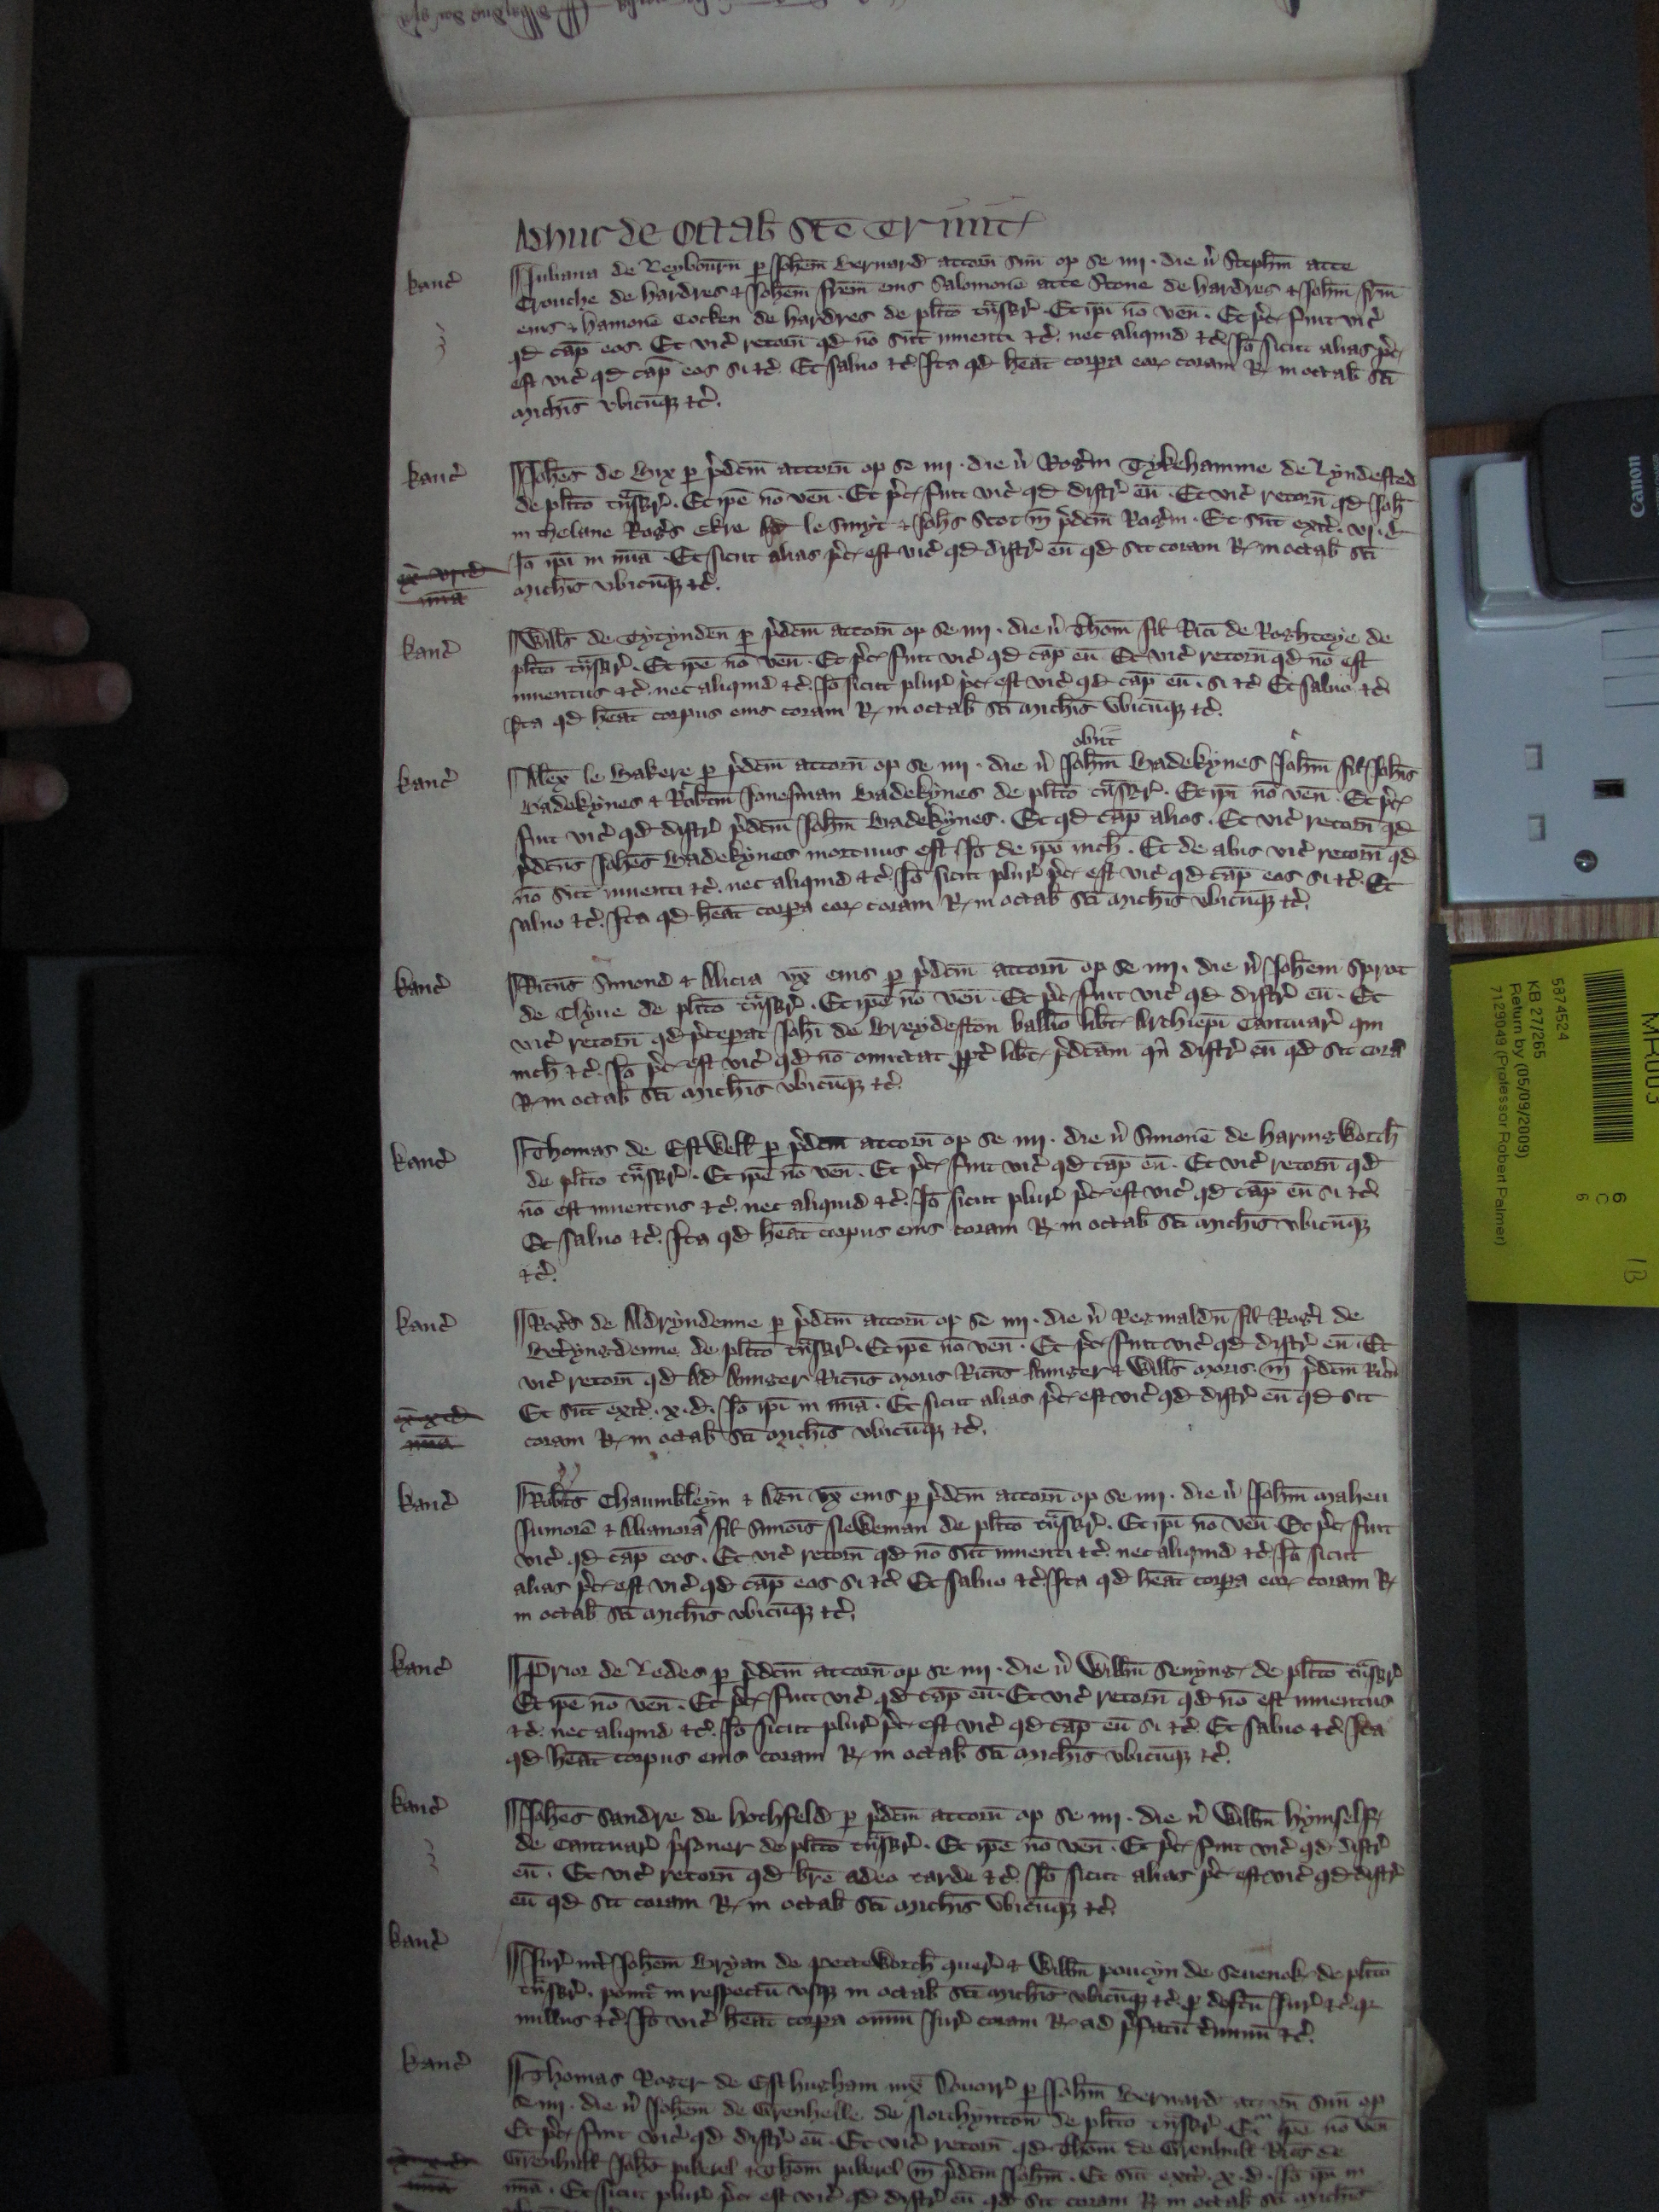 Adhuc de Octab sce Trinit
kanc Juliana de Leybourn p Johem Bernard attorn suu op se iiii. die v Stephm atte
Crouche de hardres & Johem frem eius Salomone atte Stone de hardres & Johem frem
eius & hamone Cocken de hardres de plito tnsgr. Et ipi no ven. Et pc fuit vic
qd cap eos. Et vic retorn qd no sut inuenti &c. nec aliquid &c. Io sicut alias pc
est vic qd cap eos si &c. Et saluo &c. Ita qd heat corpa eor coram R in octab sci
Michis vbicuq &c.
kanc Johes de Bix p pdcm attorn op se iiii. die v Rogm Tykehamme de Lyndested
de plito tnsgr. Et ipe no ven. Et pc fuit vic qd distr eu. Et vic retorn qd Joh
in thelane Rogs Ekre le Smyt & Johs Scot m pdcm Rogm. Et sut exit. vi. d
Io ipi in mia. Et sicut alias pc est vic qd distr eu qd sit coram R in octab sci
ex vi d
mia
Michis vbicuq &c.
kanc Wills de Tytynden p pdcm attorn op se iiii. die v Thom fil Rici de Roghteye de
plito tnsgr. Et ipe no ven. Et pc fuit vic qd cap eu. Et vic retorn qd no est
inuentus &c. nec aliquid &c. Io sicut plur pc est vic qd cap eu. si &c Et saluo &c
Ita qd heat corpus eius coram R in octab sci Michis vbicuq &c.
obiit
kanc Alex le Bakere p pdcm attorn op se iiii. die v Johm Badekynes Johm fil Johis
Badekynes & Robtm Jonesman Badekynes de plito tnsgr. Et ipi no ven. Et pc
fuit vic qd distr pdcm Johm Badekynes. Et qd cap alios. Et vic retorn qd
pdcus Johes Badekynes mortuus est Io de ipo inch. Et de aliis vic retorn qd
no sut inuenti &c. nec aliquid &c. Io sicut plur pc est vic qd cap eos si &c. Et
saluo &c. Ita qd heat corpa eor coram R in octab sci Michis vbicuq &c.
kanc Ricus Simond & Alicia vx eius p pdcm attorn op se iiii. die v Johem Sprot
de Clyue de plito tnsgr. Et ipe no ven. Et pc fuit vic qd distr eu. Et
vic retorn qd pcepat Johi de Breydeston ballio libt Archiepi Cantuar qui
inch &c. Io pc est vic qd no omittat ppt libt pdcam qn distr eu qd sit cora
R in octab sci Michis vbicuq &c.
kanc Thomas de Estwell p pdcm attorn op se iiii. die v Simone de haringworth
de plito tnsgr. Et ipe no ven. Et pc fuit vic qd cap eu. Et vic retorn qd
no est inuentus &c. nec aliquid &c. Io sicut plur pc est vic qd cap eu si &c
Et saluo &c. Ita qd heat corpus eius coram R in octab sci Michis vbicuq
&c.
kanc Rogs de Aldryndenne p pdcm attorn op se iiii. die v Reginaldu fil Rogi de
Betyngdenne de plito tnsgr. Et ipe no ven. Et pc fuit vic qd distr eu. Et
vic retorn qd Ad Aunger Ricus Moris Ricus Aunger & Wills Moris m pdcm Ricu
Et sut exit. x. d. Io ipi in mia. Et sicut alias pc est vic qd distr eu qd sit
ex x d
mia
coram R in octab sci Michis vbicuq &c.
kanc Robts Chaumbleyn & Acn vx eius p pdcm attorn op se iiii. die v Johm Maheu
Juniore & Alianora fil Simois Sleweman de plito tnsgr. Et ipi no ven. Et pc fuit
vic qd cap eos. Et vic retorn qd no sut inuenti &c. nec aliquid &c. Io sicut
alias pc est vic qd cap eos si &c Et saluo &c. Ita qd heat corpa eor coram R
in octab sci Michis vbicuq &c.
kanc Prior de Ledes p pdcm attorn op se iiii. die v Willm Senyng de plito tnsgr
Et ipe no ven. Et pc fuit vic qd cap eu. Et vic retorn qd no est inuentus
&c. nec aliquid &c. Io sicut plur pc est vic qd cap eu si &c. Et saluo &c. Ita
qd heat corpus eius coram R in octab sci Michis vbicuq &c.
kanc Johes Sandre de hothfeld p pdcm attorn op se iiii. die v Willm hymself
de Cantuar psoner de plito tnsgr. Et ipe no ven. Et pc fuit vic qd distr
eu. Et vic retorn qd bre adeo tarde &c. Io sicut alias pc est vic qd distr
eu qd sit coram R in octab sci Michis vbicuq &c.
kanc Jur int Johem Bryan de Petteworth quer & Willm Poucyn de Seuenok de plito
tnsgr. ponit in respectu vsq in octab sci Michis vbicuq &c. p defcu Jur &c. qr
nullus &c. Io vic heat corpa omiu Jur coram R ad pfatu tminu &c.
kanc Thomas Roger de Esthugham iux Douorr p Johm Bernard attorn suu op
se iiii. die v Johem de Grenhelle de Northynton de plito tnsgr. Et ipe no ven
Et pc fuit vic qd distr eu. Et vic retorn qd Thom de Grenhull Rics de
Grenhull Johs pikerel & Thom pikerel m pdcm Johm. Et sut exit. x. d. Io ipi in
mia. Et sicut plur pc est vic qd distr eu qd sit coram R in octab sci Michis
Canon
MR003
5874524
KB 27/265
Return by (05/09/2009)
7129049 (Professor Robert Palmer)
6
C
6